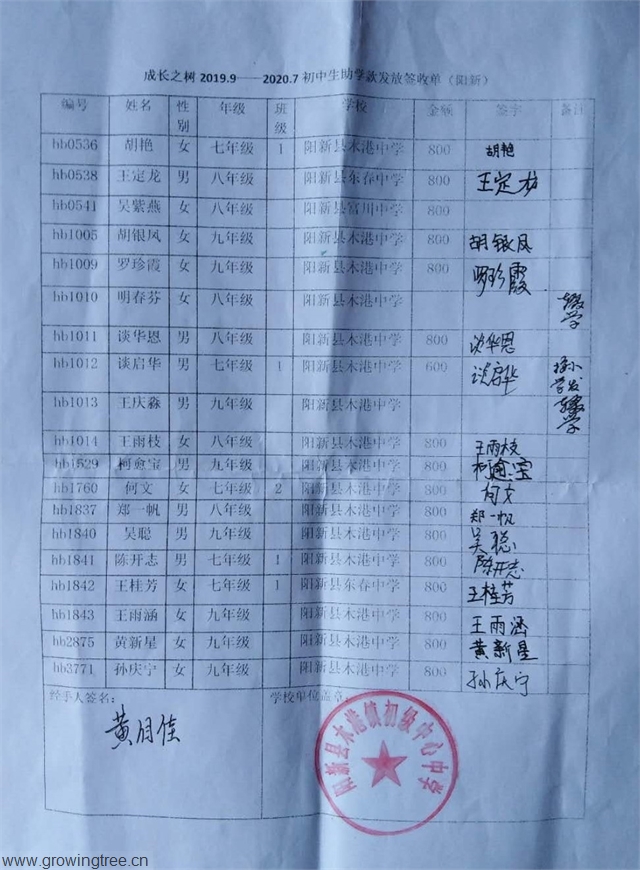 成长之树 2019.9——2020.7 初中生助学款发放签收单（阳新）
编号 姓名 性别 年级 班级 学校 金额 签字 备注
hb0536 胡艳 女 七年级 1 阳新县木港中学 800 胡艳
hb0538 王定龙 男 八年级 阳新县东春中学 800 王定龙
hb0541 吴紫燕 女 八年级 阳新县富川中学 800
hb1005 胡银凤 女 九年级 阳新县木港中学 800 胡银凤
hb1009 罗珍霞 女 九年级 阳新县木港中学 800 罗珍霞
hb1010 明春芬 女 八年级 阳新县木港中学 学
hb1011 谈华恩 男 八年级 阳新县木港中学 800 谈华恩
hb1012 谈启华 男 七年级 1 阳新县木港中学 600 谈启华 按小学发
hb1013 王庆淼 男 九年级 阳新县木港中学 学
hb1014 王雨枝 女 八年级 阳新县木港中学 800 王雨枝
hb1529 柯愈宝 男 九年级 阳新县木港中学 800 柯愈宝
hb1760 何文 女 七年级 2 阳新县木港中学 800 何文
hb1837 郑一帆 男 八年级 阳新县木港中学 800 郑一帆
hb1840 吴聪 男 九年级 阳新县木港中学 800 吴聪
hb1841 陈开志 男 七年级 1 阳新县木港中学 800 陈开志
hb1842 王桂芳 女 七年级 1 阳新县东春中学 800 王桂芳
hb1843 王雨涵 女 九年级 阳新县木港中学 800 王雨涵
hb2875 黄新星 女 九年级 阳新县木港中学 800 黄新星
hb3771 孙庆宁 女 九年级 阳新县木港中学 800 孙庆宁
经手人签名： 学校单位盖章：
黄月佳
阳新县木港镇初级中心中学
www.growingtree.cn